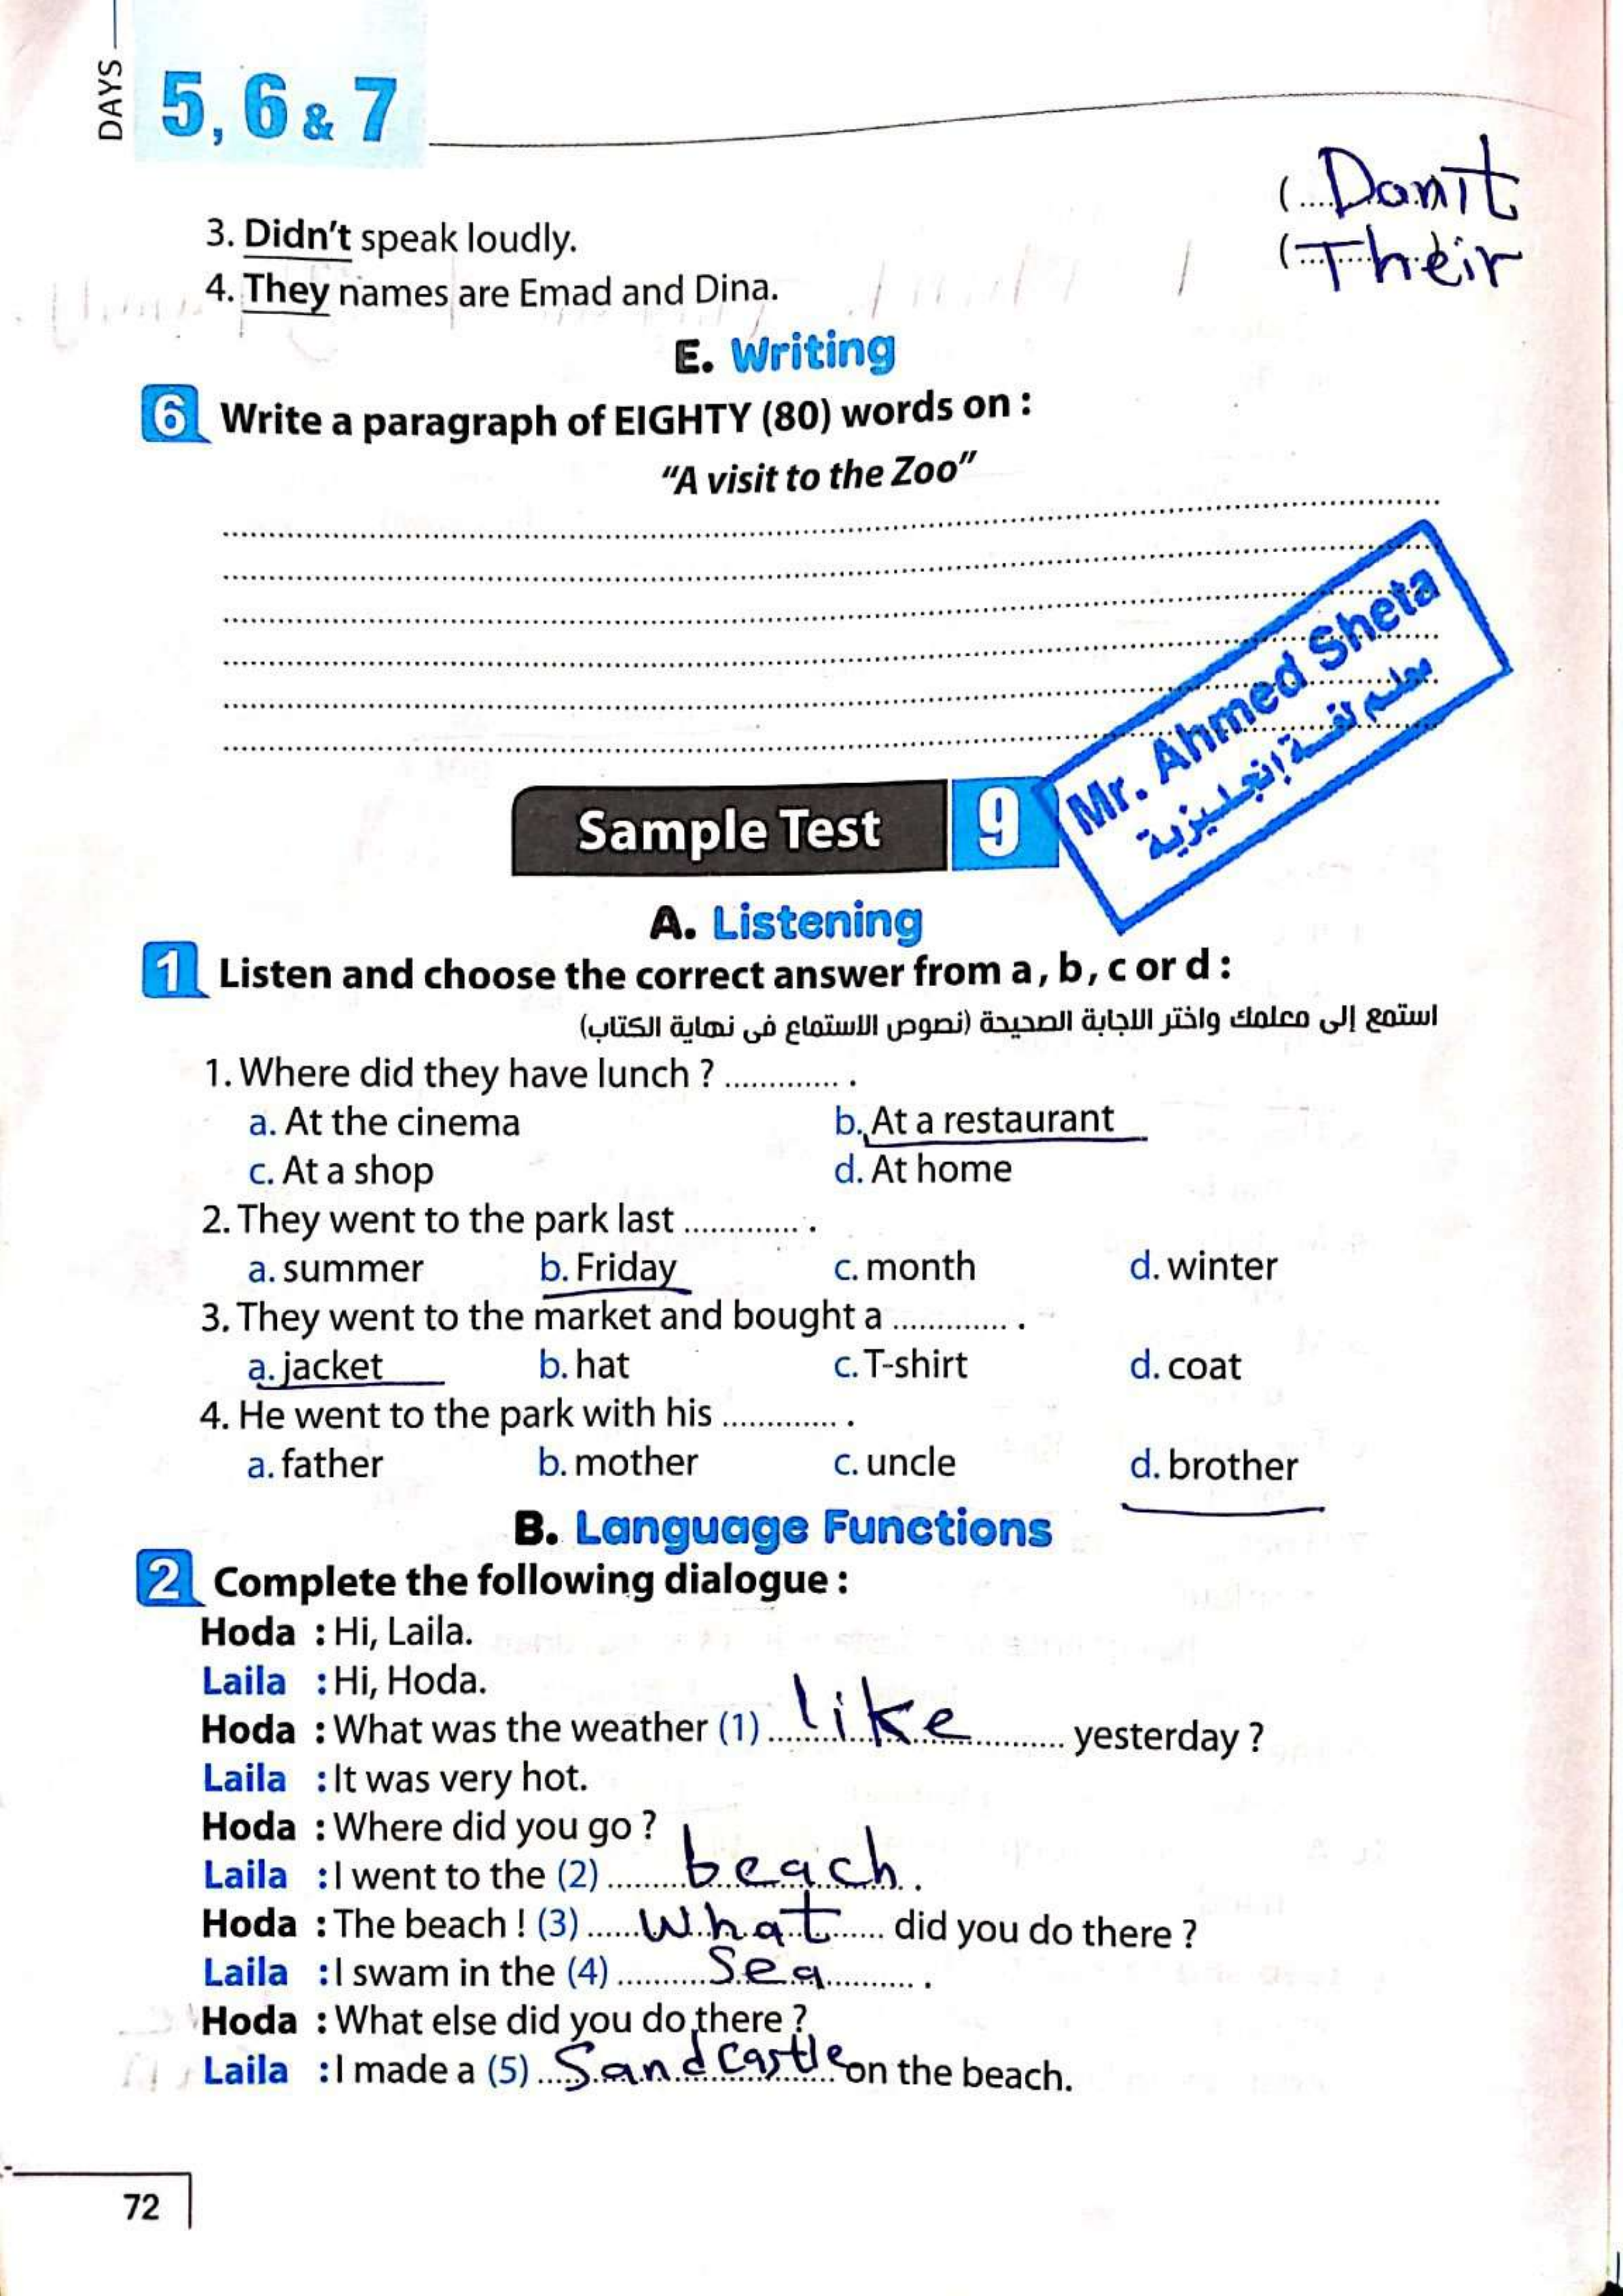 DAYS 5, 6 & 7
3. Didn't speak loudly. (....Don't
4. They names are Emad and Dina. (....Their
E. Writing
6 Write a paragraph of EIGHTY (80) words on :
"A visit to the Zoo"
Mr. Ahmed Sheta
معلم لغة إنجليزية
Sample Test 9
A. Listening
1 Listen and choose the correct answer from a, b, c or d :
استمع إلى معلمك واختر الاجابة الصحيحة (نصوص الاستماع فى نهاية الكتاب)
1. Where did they have lunch ? .............. .
a. At the cinema b. At a restaurant
c. At a shop d. At home
2. They went to the park last .............. .
a. summer b. Friday c. month d. winter
3. They went to the market and bought a .............. .
a. jacket b. hat c. T-shirt d. coat
4. He went to the park with his .............. .
a. father b. mother c. uncle d. brother
B. Language Functions
2 Complete the following dialogue :
Hoda : Hi, Laila.
Laila : Hi, Hoda.
Hoda : What was the weather (1) ....like.... yesterday ?
Laila : It was very hot.
Hoda : Where did you go ?
Laila : I went to the (2) ....beach.. .
Hoda : The beach ! (3) ....What.... did you do there ?
Laila : I swam in the (4) ....Sea.... .
Hoda : What else did you do there ?
Laila : I made a (5) ...Sandcastle on the beach.
72